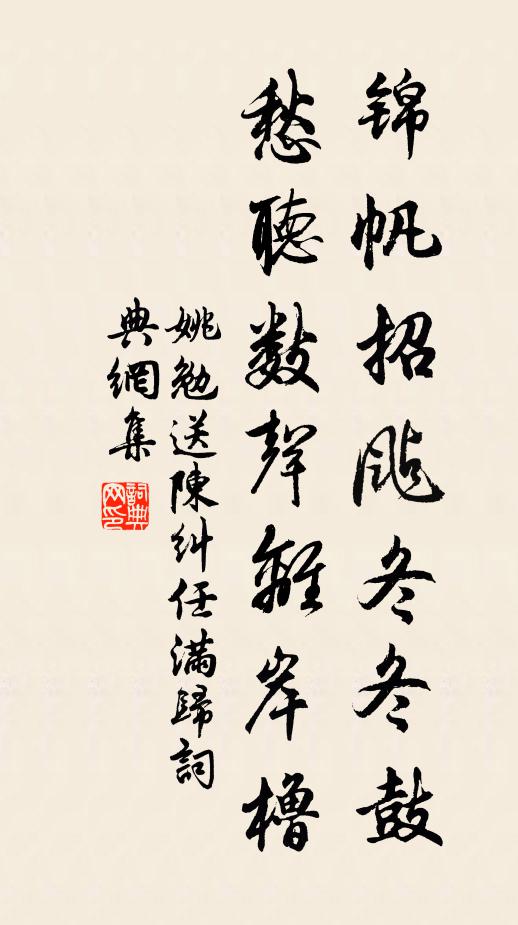 锦帆招飐冬冬鼓
愁聽数聲離岸櫓
姚勉送陳糾任滿歸詞
典網集
詞典網印